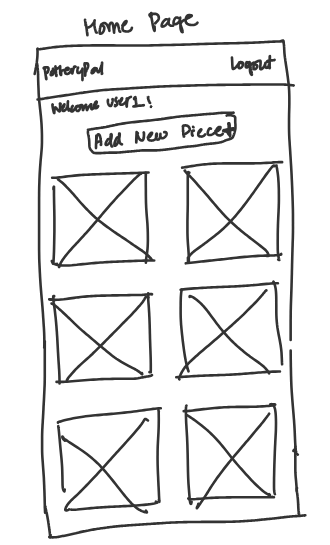 Home Page
PotteryPal
Logout
Welcome user1!
Add New Piece+